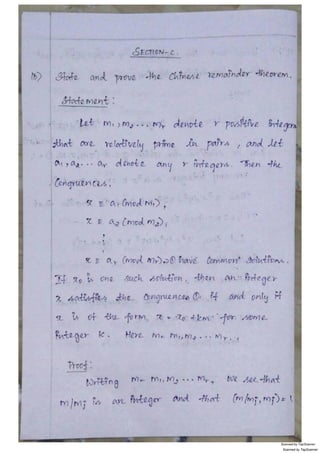 SECTION-C.
18) State and prove the Chinese remainder theorem.
Statement:
Let m₁, m₂ ... mᵣ denote r positive integers
that are relatively prime in pairs, and let
a₁, a₂ ... aᵣ denote any r integers. Then the
Congruences.
x ≡ a₁ (mod m₁),
x ≡ a₂ (mod m₂),
⋮
x ≡ aᵣ (mod mᵣ) → ① have common solutions.
If x₀ is one such solution, then an integer
x satisfies the congruences ① if and only if
x is of the form x = x₀ + km for some
integer k. Here m = m₁, m₂ ... mᵣ.
Proof:
Writing m = m₁. m₂ ... mᵣ, we see that
m/mj is an integer and that (m/mj, mj) = 1.
Scanned by TapScanner
Scanned by TapScanner